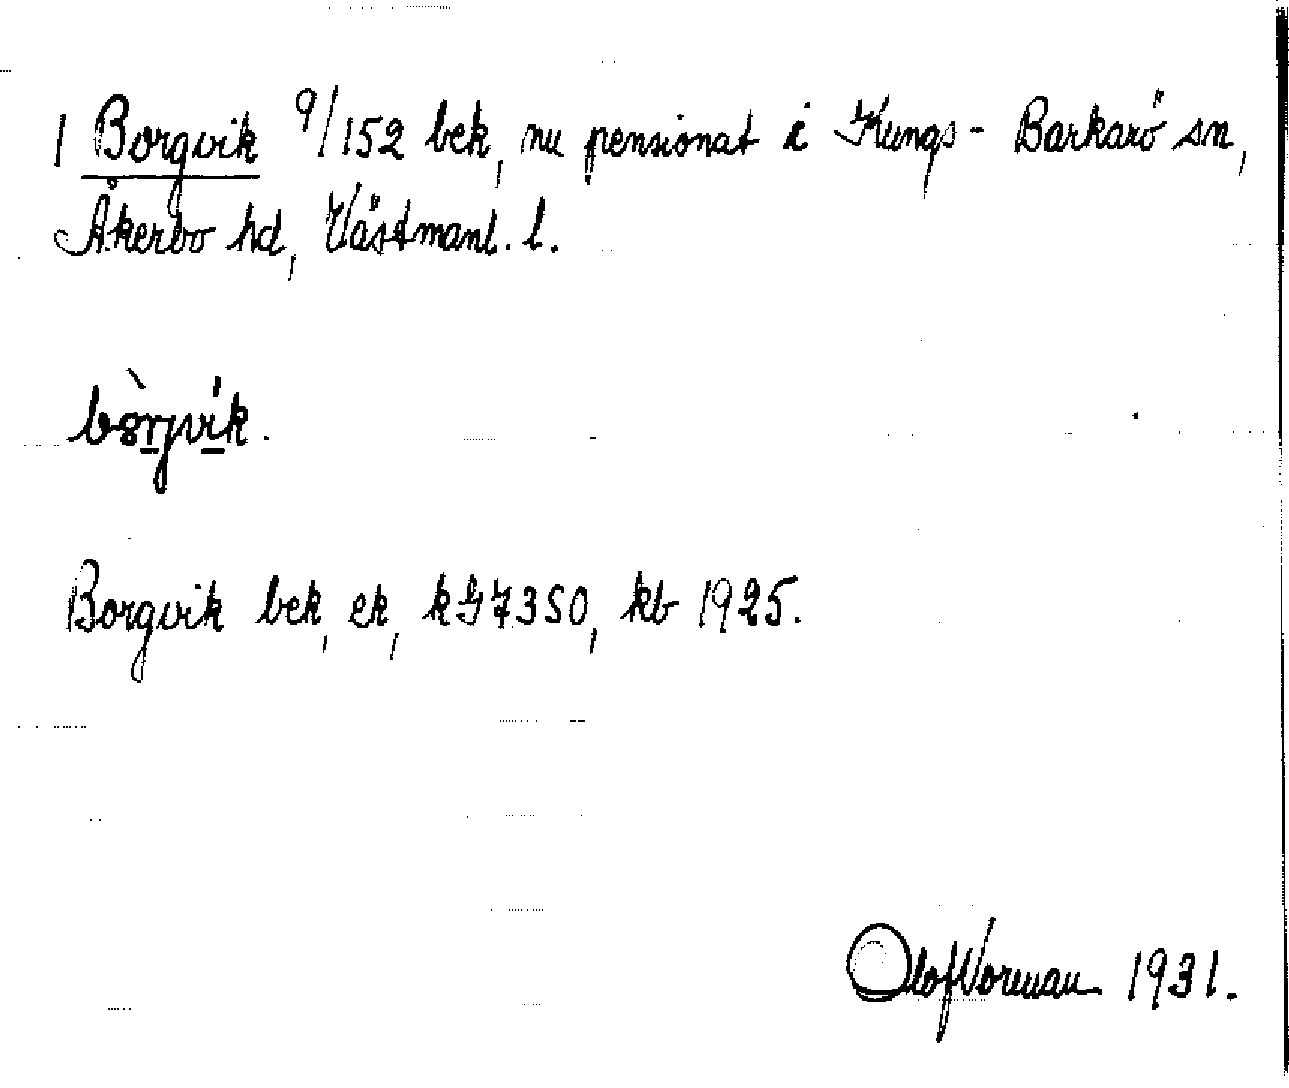 1 Borgvik 9/152 bek, nu pensionat i Kungs-Barkarö sn,
Åkerbo hd, Västmanl. l.
Borgvik bek, ek, kG7350, kb 1925.
Olof Vorenau 1931.